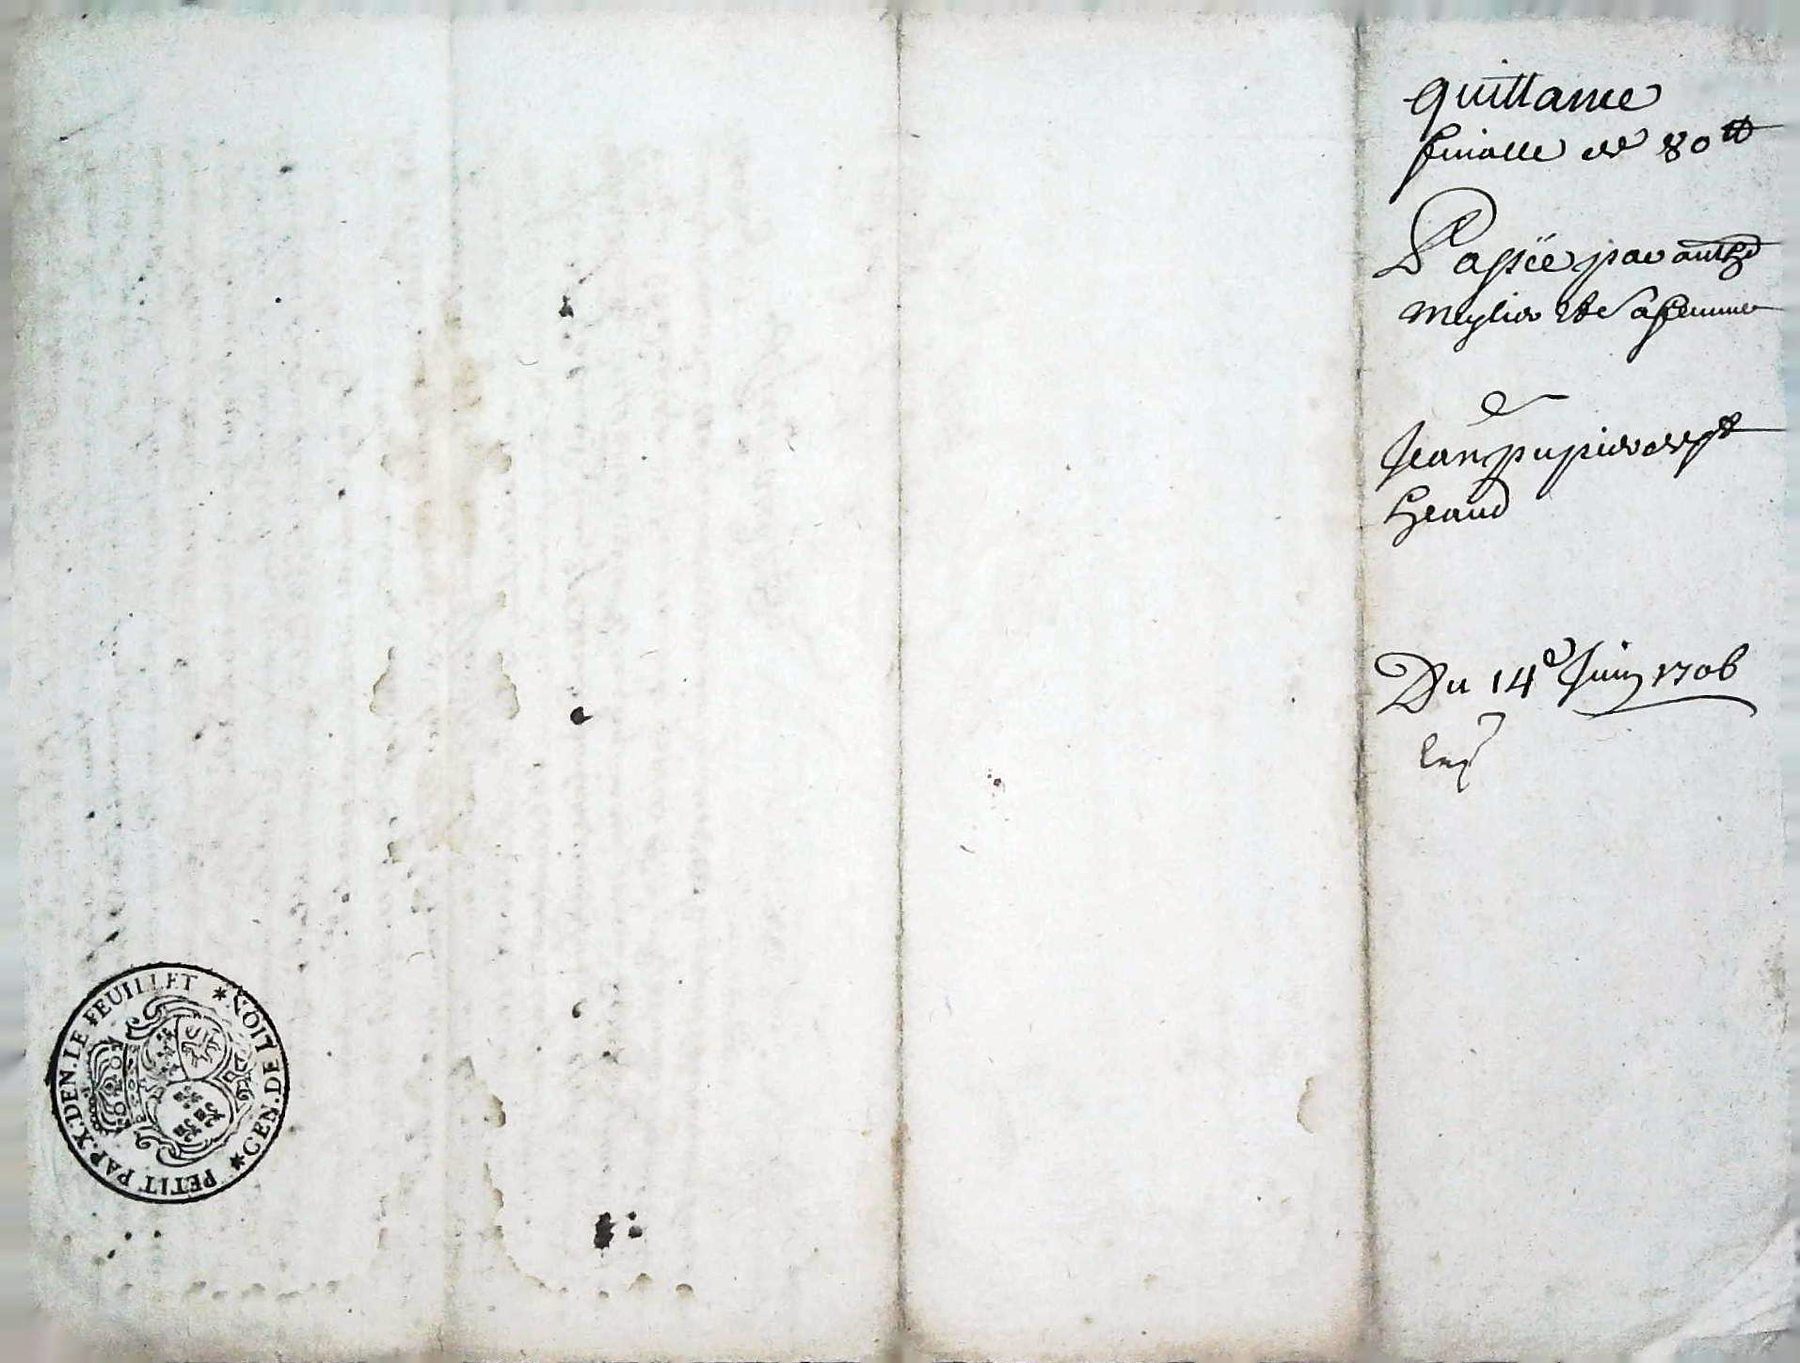 quittance
finalle de 80 ₶
Passée par anthe
meylier et sa femme
a
Jean pupier de st
heand
Du 14e Juin 1706
PETIT PAP.X.DEN.LE FEUILLET * GEN.DE LION *